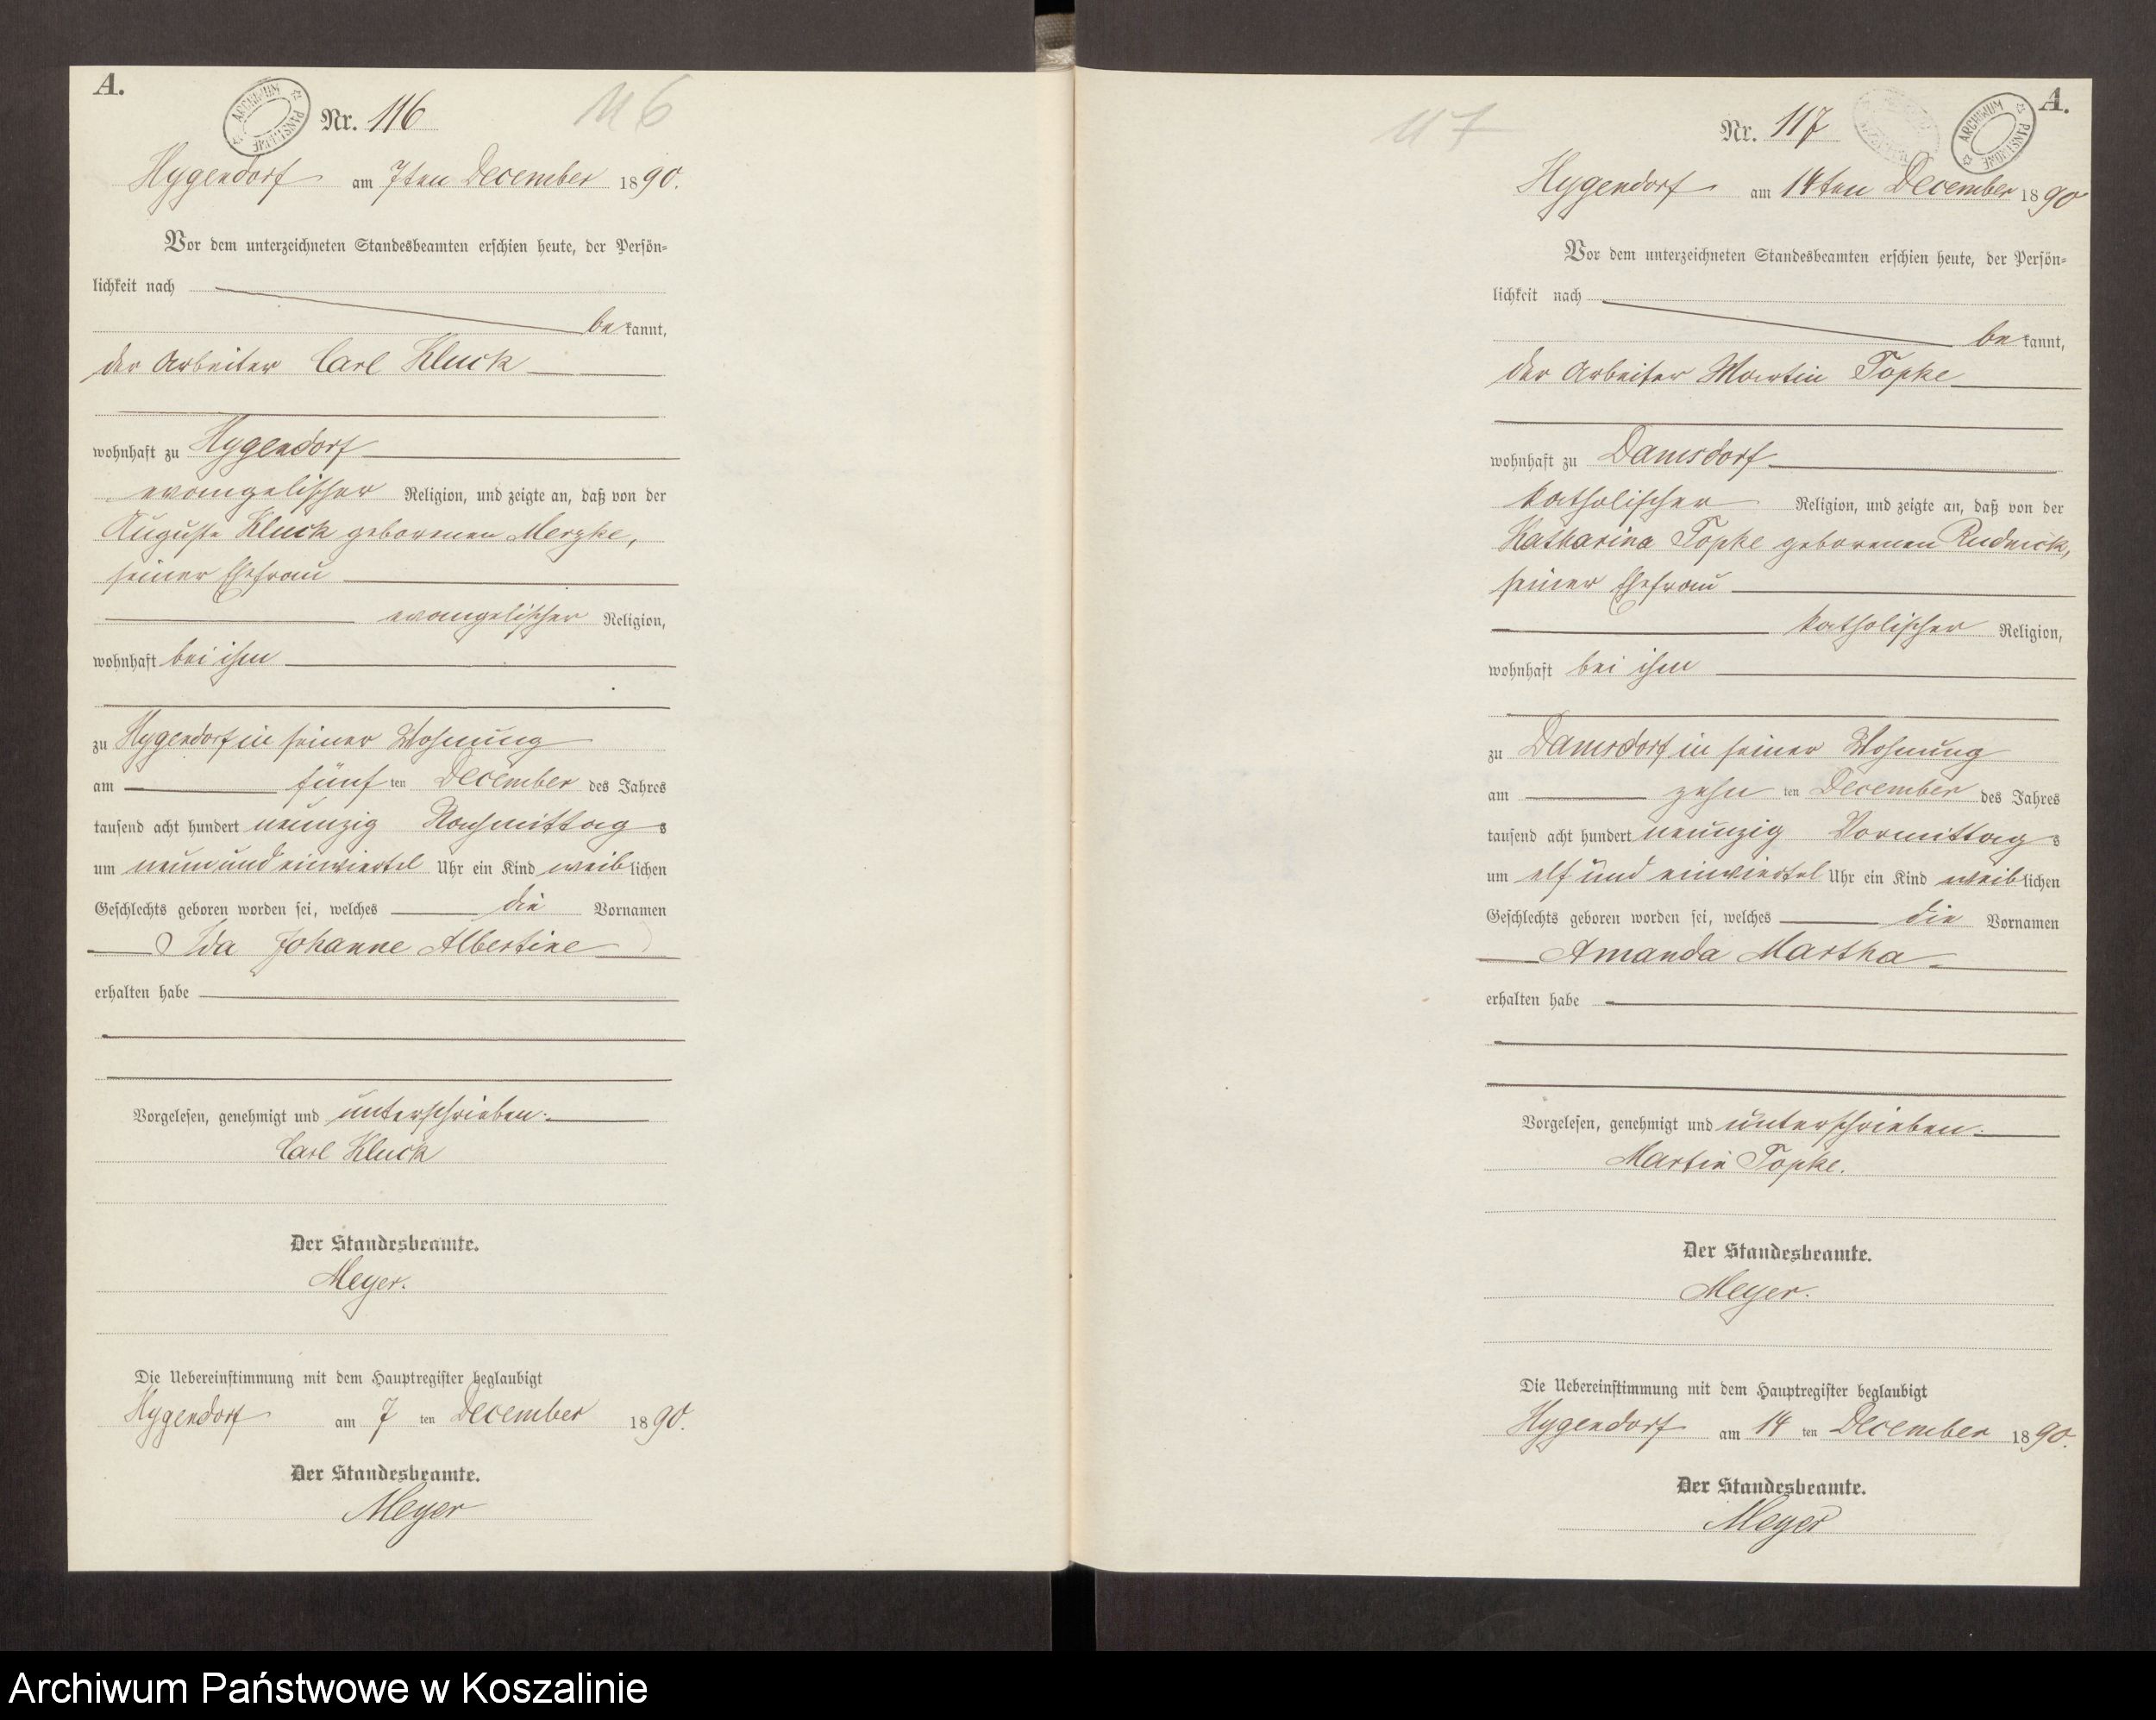 A.
ARCHIWUM PAŃSTWOWE
Nr. 116
116
Hygendorf am 7ten December 1890.
Vor dem unterzeichneten Standesbeamten erschien heute, der Persön-
lichkeit nach
bekannt,
der Arbeiter Carl Kluck
wohnhaft zu Hygendorf
evangelischer Religion, und zeigte an, daß von der
Auguste Kluck geborenen Merzke,
seiner Ehefrau
evangelischer Religion,
wohnhaft bei ihm
zu Hygendorf in seiner Wohnung
am fünften December des Jahres
tausend acht hundert neunzig Nachmittags
um neun und einviertel Uhr ein Kind weiblichen
Geschlechts geboren worden sei, welches die Vornamen
Ida Johanne Albertine
erhalten habe
Vorgelesen, genehmigt und unterschrieben.
Carl Kluck
Der Standesbeamte.
Meyer.
Die Uebereinstimmung mit dem Hauptregister beglaubigt
Hygendorf am 7ten December 1890.
Der Standesbeamte.
Meyer
117
Nr. 117
ARCHIWUM PAŃSTWOWE
A.
Hygendorf am 14ten December 1890
Vor dem unterzeichneten Standesbeamten erschien heute, der Persön-
lichkeit nach
bekannt,
der Arbeiter Martin Topke
wohnhaft zu Damsdorf
katholischer Religion, und zeigte an, daß von der
Katharina Topke geborenen Rudnick,
seiner Ehefrau
katholischer Religion,
wohnhaft bei ihm
zu Damsdorf in seiner Wohnung
am zehnten December des Jahres
tausend acht hundert neunzig Vormittags
um elf und einviertel Uhr ein Kind weiblichen
Geschlechts geboren worden sei, welches die Vornamen
Amanda Martha
erhalten habe
Vorgelesen, genehmigt und unterschrieben.
Martin Topke.
Der Standesbeamte.
Meyer.
Die Uebereinstimmung mit dem Hauptregister beglaubigt
Hygendorf am 14ten December 1890.
Der Standesbeamte.
Meyer
Archiwum Państwowe w Koszalinie